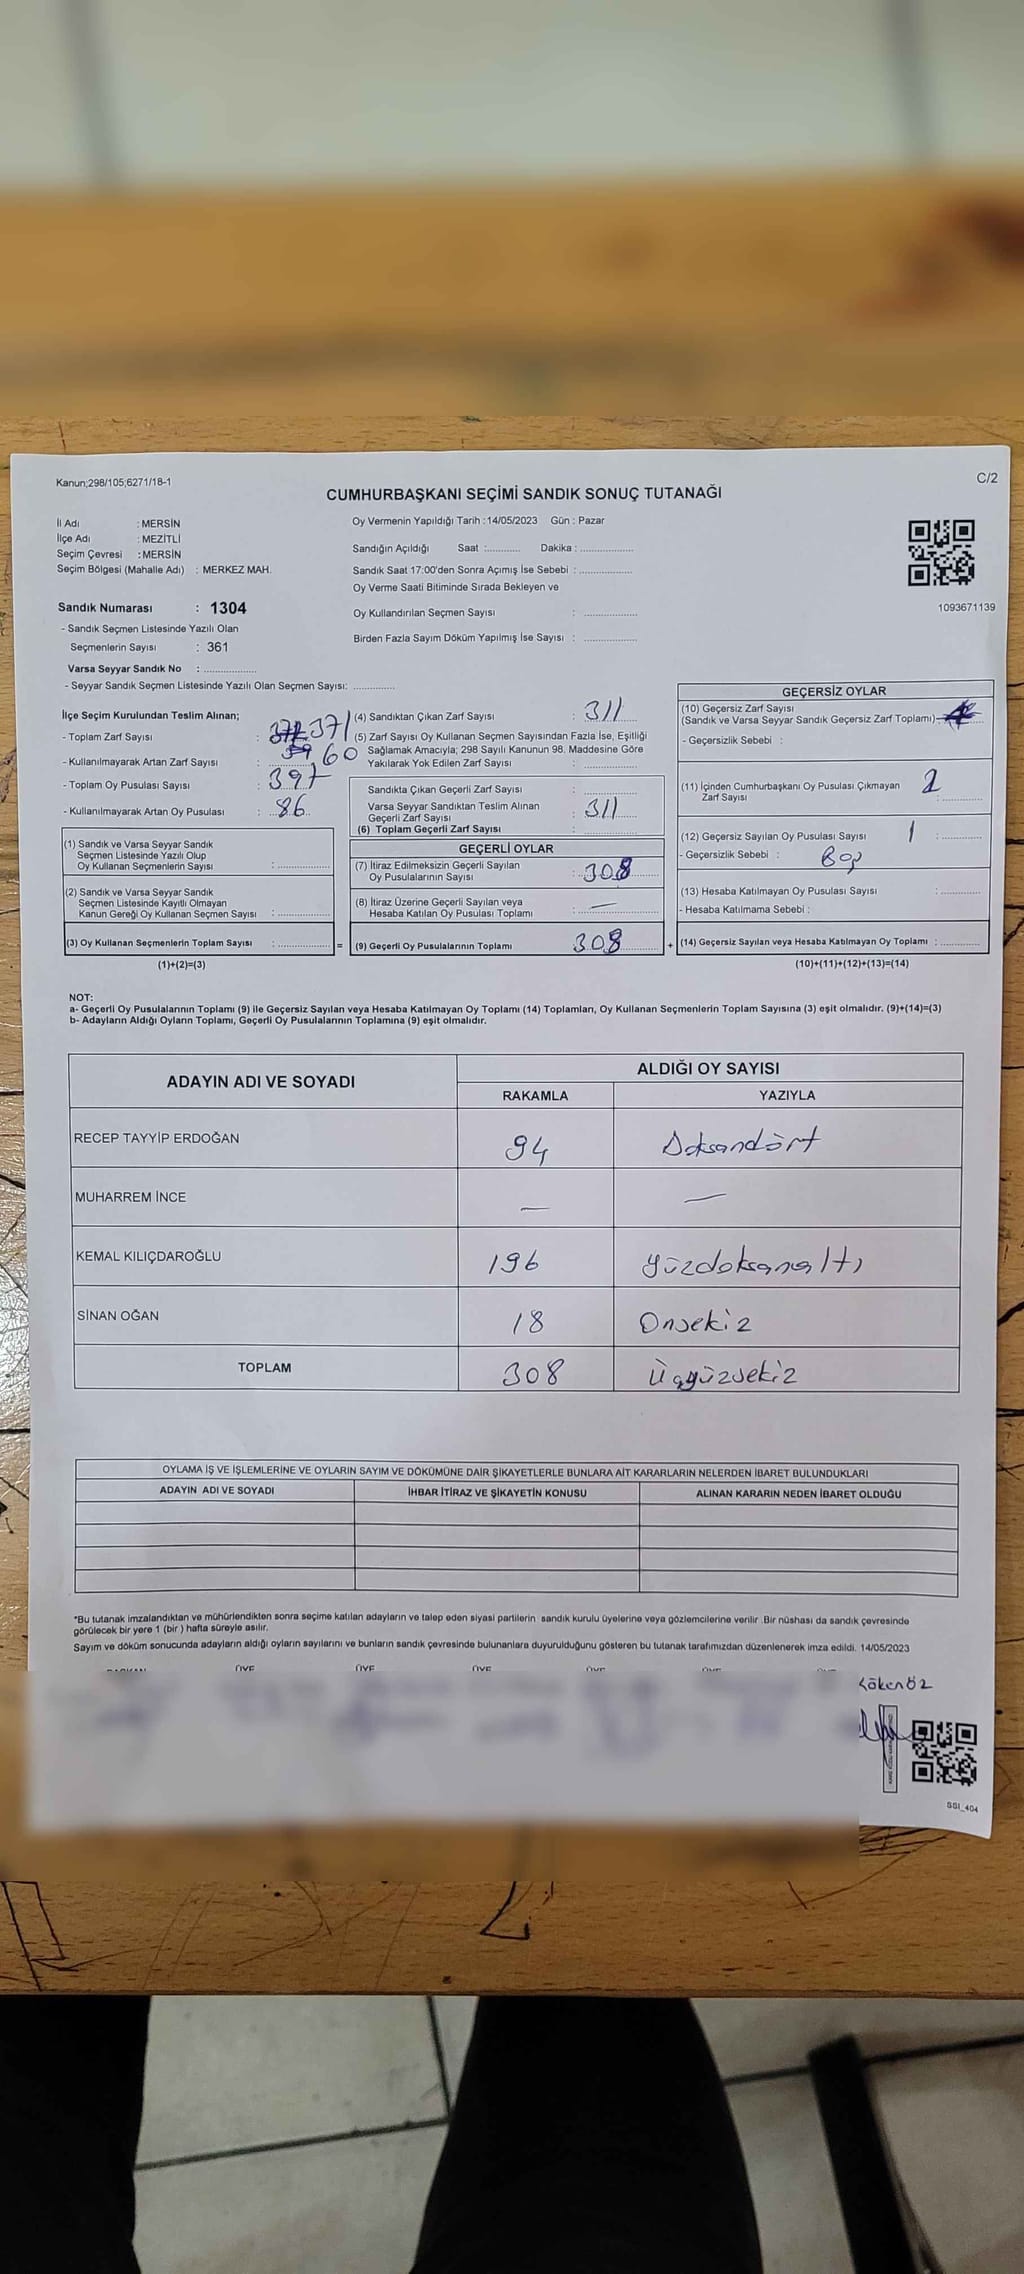 Kanun;298/105;6271/18-1
C/2
CUMHURBAŞKANI SEÇİMİ SANDIK SONUÇ TUTANAĞI
İl Adı : MERSİN
İlçe Adı : MEZİTLİ
Seçim Çevresi : MERSİN
Seçim Bölgesi (Mahalle Adı) : MERKEZ MAH.
Sandık Numarası : 1304
- Sandık Seçmen Listesinde Yazılı Olan
Seçmenlerin Sayısı : 361
Varsa Seyyar Sandık No : ................
- Seyyar Sandık Seçmen Listesinde Yazılı Olan Seçmen Sayısı: .............
Oy Vermenin Yapıldığı Tarih : 14/05/2023 Gün : Pazar
Sandığın Açıldığı Saat :............ Dakika : ................
Sandık Saat 17:00'den Sonra Açımış İse Sebebi : ................
Oy Verme Saati Bitiminde Sırada Bekleyen ve
Oy Kullandırılan Seçmen Sayısı : ................
Birden Fazla Sayım Döküm Yapılmış İse Sayısı : ................
1093671139
İlçe Seçim Kurulundan Teslim Alınan;
- Toplam Zarf Sayısı : 371
- Kullanılmayarak Artan Zarf Sayısı : 60
- Toplam Oy Pusulası Sayısı : 397
- Kullanılmayarak Artan Oy Pusulası : 86
(1) Sandık ve Varsa Seyyar Sandık
Seçmen Listesinde Yazılı Olup
Oy Kullanan Seçmenlerin Sayısı : ................
(2) Sandık ve Varsa Seyyar Sandık
Seçmen Listesinde Kayıtlı Olmayan
Kanun Gereği Oy Kullanan Seçmen Sayısı : ................
(3) Oy Kullanan Seçmenlerin Toplam Sayısı : ................ =
(1)+(2)=(3)
(4) Sandıktan Çıkan Zarf Sayısı : 311
(5) Zarf Sayısı Oy Kullanan Seçmen Sayısından Fazla İse, Eşitliği
Sağlamak Amacıyla; 298 Sayılı Kanunun 98. Maddesine Göre
Yakılarak Yok Edilen Zarf Sayısı : ................
Sandıkta Çıkan Geçerli Zarf Sayısı : ................
Varsa Seyyar Sandıktan Teslim Alınan
Geçerli Zarf Sayısı : 311
(6) Toplam Geçerli Zarf Sayısı : ................
GEÇERLİ OYLAR
(7) İtiraz Edilmeksizin Geçerli Sayılan
Oy Pusulalarının Sayısı : 308
(8) İtiraz Üzerine Geçerli Sayılan veya
Hesaba Katılan Oy Pusulası Toplamı : —
(9) Geçerli Oy Pusulalarının Toplamı 308 +
GEÇERSİZ OYLAR
(10) Geçersiz Zarf Sayısı
(Sandık ve Varsa Seyyar Sandık Geçersiz Zarf Toplamı)
- Geçersizlik Sebebi :
(11) İçinden Cumhurbaşkanı Oy Pusulası Çıkmayan 2
Zarf Sayısı : ............
(12) Geçersiz Sayılan Oy Pusulası Sayısı 1 : ............
- Geçersizlik Sebebi : Boş
(13) Hesaba Katılmayan Oy Pusulası Sayısı : ............
- Hesaba Katılmama Sebebi :
(14) Geçersiz Sayılan veya Hesaba Katılmayan Oy Toplamı : ............
(10)+(11)+(12)+(13)=(14)
NOT:
a- Geçerli Oy Pusulalarının Toplamı (9) ile Geçersiz Sayılan veya Hesaba Katılmayan Oy Toplamı (14) Toplamları, Oy Kullanan Seçmenlerin Toplam Sayısına (3) eşit olmalıdır. (9)+(14)=(3)
b- Adayların Aldığı Oyların Toplamı, Geçerli Oy Pusulalarının Toplamına (9) eşit olmalıdır.
ADAYIN ADI VE SOYADI ALDIĞI OY SAYISI
RAKAMLA YAZIYLA
RECEP TAYYİP ERDOĞAN 94 Doksandört
MUHARREM İNCE — —
KEMAL KILIÇDAROĞLU 196 yüzdoksanaltı
SİNAN OĞAN 18 Onsekiz
TOPLAM 308 Üçyüzsekiz
OYLAMA İŞ VE İŞLEMLERİNE VE OYLARIN SAYIM VE DÖKÜMÜNE DAİR ŞİKAYETLERLE BUNLARA AİT KARARLARIN NELERDEN İBARET BULUNDUKLARI
ADAYIN ADI VE SOYADI İHBAR İTİRAZ VE ŞİKAYETİN KONUSU ALINAN KARARIN NEDEN İBARET OLDUĞU
*Bu tutanak imzalandıktan ve mühürlendikten sonra seçime katılan adayların ve talep eden siyasi partilerin sandık kurulu üyelerine veya gözlemcilerine verilir .Bir nüshası da sandık çevresinde
görülecek bir yere 1 (bir ) hafta süreyle asılır.
Sayım ve döküm sonucunda adayların aldığı oyların sayılarını ve bunların sandık çevresinde bulunanlara duyurulduğunu gösteren bu tutanak tarafımızdan düzenlenerek imza edildi. 14/05/2023
BAŞKAN ÜYE ÜYE ÜYE ÜYE ÜYE ÜYE
Kökenöz
SSI_404